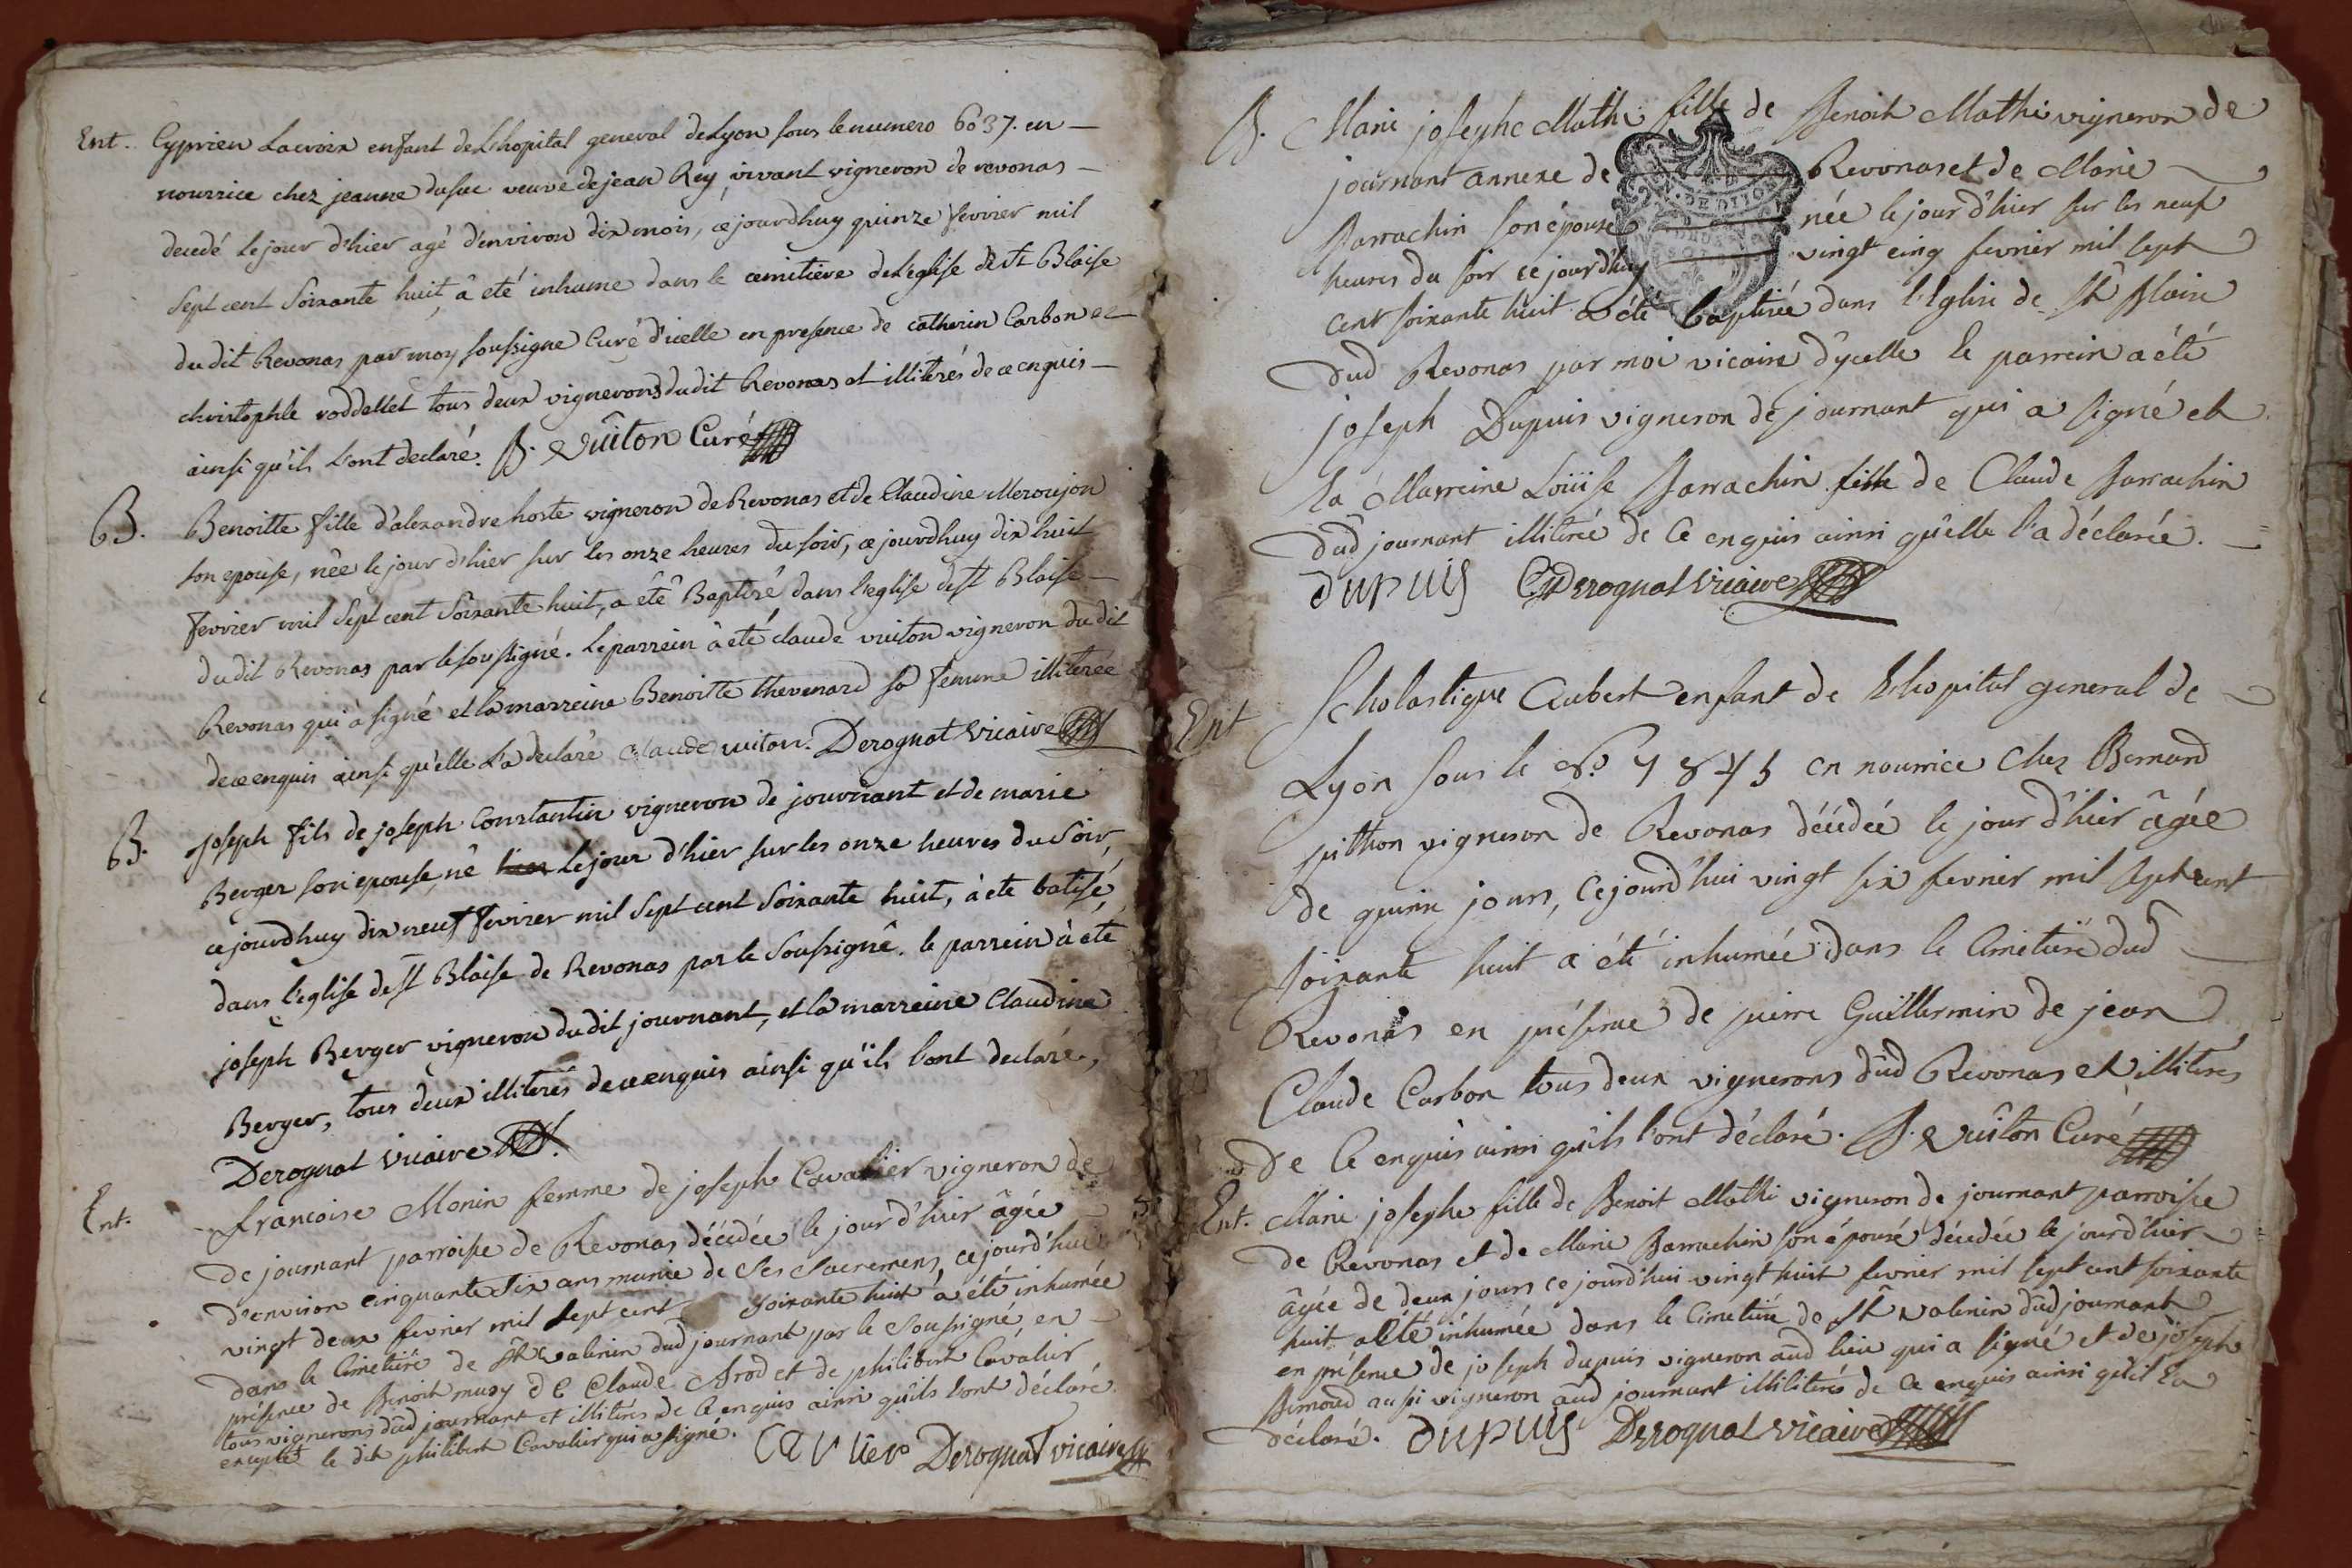 Ent. Cyprien Lacroix enfant de Lhopital general de Lyon sous le numero 6037. en
nourrice chez jeanne dufue veuve de jean Rey, vivant vigneron de revonas
decedé le jour d'hier agé d'environ dix mois, ce jourdhuy quinze fevrier mil
sept cent soixante huit, à eté inhumé dans le cemitiere de L'eglise de St Blaise
du dit Revonas par moy soussigné Curé d'icelle en presence de catherin Carbon et
christophle roddellet tous deux vignerons du dit Revonas et illiterés de ce enquis
ainsi qu'ils L'ont declaré. B. Vuiton Curé
B. Benoitte fille d'alexandre hoste vigneron de Revonas et de Claudine Meroujon
son epouse, née le jour d'hier sur les onze heures du soir, ce jourdhuy dix huit
fevrier mil sept cent soixante huit, a été Baptisé dans l'eglise de St Blaise
du dit Revonas par le soussigné. Le parrein à eté claude vuiton vigneron du dit
Revonas qui à signé et la marreine Benoitte thevenard sa femme illiterée
de ce enquis ainsi qu'elle L'a declaré claude vuiton. Derognat vicaire
B. joseph fils de joseph Constantin vigneron de journant et de marie
Berger son epouse, né le jour d'hier sur les onze heures du soir,
ce jourdhuy dix neuf fevrier mil sept cent soixante huit, à eté batisé,
dans l'eglise de St Blaise de Revonas par le soussigné. le parrein à eté
joseph Berger vigneron du dit journant, et la marreine Claudine
Berger, tous deux illiterés de ce enquis ainsi qu'ils l'ont declaré,
Derognat vicaire
Ent. francoise Monin femme de joseph Cavalier vigneron de
de journant parroisse de Revonas décédée le jour d'hier âgée
d'environ cinquante six ans munie de ses sacremens, ce jourd'hui
vingt deux fevrier mil sept cent soixante huit a été inhumée
dans le Cimetiére de St valenin dud journant par le soussigné en
présence de Benoit muzy de Claude Arod et de philibert Cavalier
tous vignerons dud journant et illitérés de ce enquis ainsi qu'ils l'ont déclaré
excepté le dit philibert Cavalier qui a signé. Cavlier Derognat vicaire
B. Marie josephe Mathi fille de Benoit Mathi vigneron de
journant annexe de Revonas et de Marie
Barrachin son épouse née le jour d'hier sur les neuf
heures du soir ce jourd'huy vingt cinq fevrier mil sept
cent soixante huit a été baptisée dans l'Eglise de St Blaise
dud Revonas par moi vicaire d'ycelle le parrein a été
joseph Dupuis vigneron de journant qui a signé et
la Marreine Loüise Barrachin fille de Claude Barrachin
dud journant illitérée de ce enquis ainsi qu'elle l'a déclarée.
dupuis Derognat vicaire
Ent Scholastique Aubert enfant de L'hopital general de
Lyon sous le No. 7845 en nourrice chez Bernard
pithon vigneron de Revonas décédée le jour d'hier âgée
de quinze jours, ce jourd'hui vingt six fevrier mil sept cent
soixante huit a été inhumée dans le Cimetiére dud
Revonas en présence de pierre Guillermin de jean
Claude Carbon tous deux vignerons dud Revonas et illitérés
de ce enquis ainsi qu'ils l'ont déclaré. B. Vuiton Curé
Ent. Marie josephe fille de Benoit Mathi vigneron de journant parroisse
de Revonas et de Marie Barrachin son épouse décédée le jour d'hier
âgée de deux jours ce jourd'hui vingt huit fevrier mil sept cent soixante
huit a été inhumée dans le Cimetiére de St valenin dud journant
en présence de joseph dupuis vigneron aud lieu qui a signé et de joseph
Bernoud aussi vigneron aud journant illiterés de ce enquis ainsi qu'il l'a
déclaré. dupuis Derognat vicaire